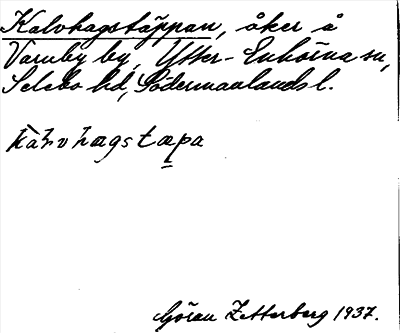 Kalvhagstäppan, åker å
Vammby by, Ytter-Enhörna sn,
Selebo hd, Södermanlands l.
Göran Zetterberg 1937.